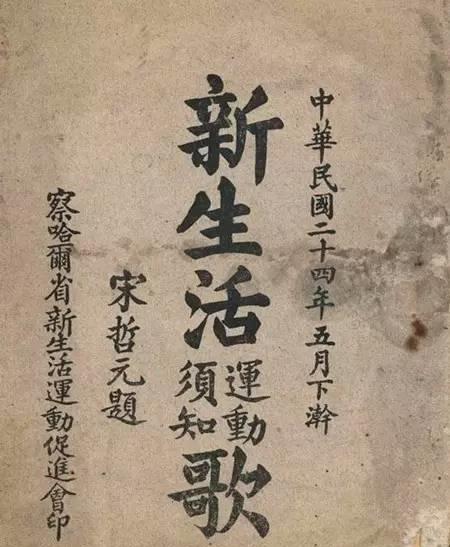 中華民國二十四年五月下澣
新生活運動須知歌
宋哲元題
察哈爾省新生活運動促進會印